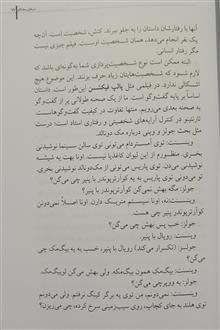 آنها با رفتارشان داستان را به جلو ببرند. کنش، شخصیت است. آن‌چه
یک نفر انجام می‌دهد، همان شخصیت اوست. فیلم چیزی نیست
مگر رفتار انسانی.
البته ممکن است نوع شخصیت‌پردازی شما به‌گونه‌ای باشد که
لازم شود که شخصیت‌هایتان زیاد حرف بزنند. این موضوع هیچ
اشکالی ندارد. در فیلمی مثل پالپ فیکشن این‌طور است. داستان
اساساً بر پایه گفت‌وگو است. ما از یک صحنه طولانی پر از گفت‌وگو
به صحنه بعدی می‌رویم. منتها تفاوت در کیفیت گفت‌وگوهاست.
تارنتینو در کنترل آرایه‌های شخصیتی و رفتاری استاد است؛ درست
مثل بحث جولز و وینی درباره مک دونالد.
وینسنت: توی آمستردام می‌تونی توی سالن سینما نوشیدنی
بخری. منظورم از این لیوان کاغذیا نیست. اونا بهت یه شیشه
نوشیدنی می‌دن. توی پاریس می‌تونی از مک‌دونالد نوشیدنی بخری.
تو می‌دونی توی پاریس به یه کوآرترپوندر با پنیر چی می‌گن؟
جولز: مگه بهش نمی‌گن کوآرترپوندر با پنیر؟
وینسنت: نه، اونا سیستم متریک دارن. اونا اصلاً نمی‌دونن
کوآرترپوندر پنیر چی هست.
جولز: خب پس بهش چی می‌گن؟
وینسنت: رویال با پنیر.
جولز: (تکرار می‌کند) رویال با پنیر، خسب به یه بیگ‌مک چی
می‌گن؟
وینسنت: بیگ‌مک همون بیگ‌مکه. ولی بهش می‌گن لوبیگ‌مک
جولز: به ووپر چی می‌گن؟
وینسنت: نمی‌دونم، من توی به برگر کینگ نرفتم. ولی می‌دونم
توی هلند به جای کچاپ، روی سیب‌زمینی سرخ کرده، چی می‌ریزن؟